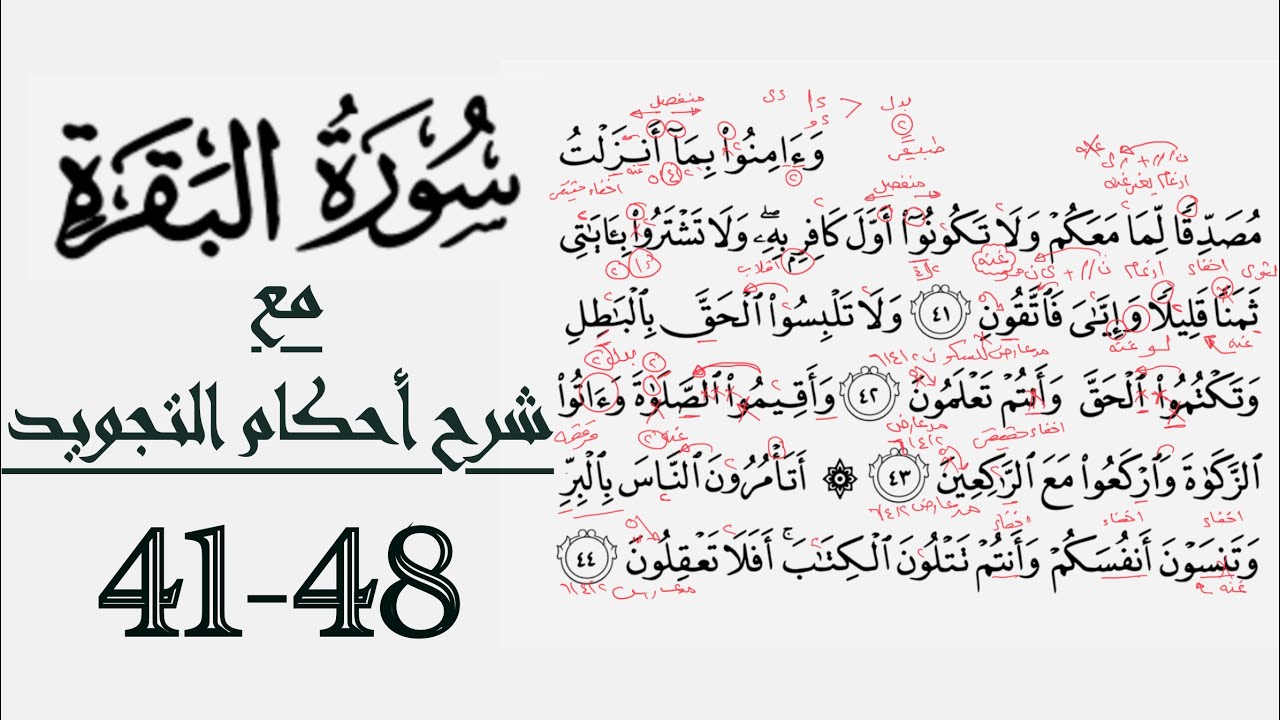 سُورَةُ البَقَرَةِ
مع
شرح أحكام التجويد
41-48
منفصل
بدل
طبيعي
وَءَامِنُوا۟ بِمَآ أَنزَلْتُ
ادغام بغير غنه
منفصل
اخفاء حقيقي
مُصَدِّقًا لِّمَا مَعَكُمْ وَلَا تَكُونُوٓا۟ أَوَّلَ كَافِرٍۭ بِهِۦ ۖ وَلَا تَشْتَرُوا۟ بِـَٔايَـٰتِى
اخفاء ادغام غنه اقلاب
ثَمَنًا قَلِيلًا وَإِيَّـٰىَ فَٱتَّقُونِ ٤١ وَلَا تَلْبِسُوا۟ ٱلْحَقَّ بِٱلْبَـٰطِلِ
غنه غنه مد عارض للسكون ٦/٤/٢ بدل
وَتَكْتُمُوا۟ ٱلْحَقَّ وَأَنتُمْ تَعْلَمُونَ ٤٢ وَأَقِيمُوا۟ ٱلصَّلَوٰةَ وَءَاتُوا۟
اخفاء حقيقي مد عارض ٦/٤/٢ غنه
ٱلزَّكَوٰةَ وَٱرْكَعُوا۟ مَعَ ٱلرَّٰكِعِينَ ٤٣ ۞ أَتَأْمُرُونَ ٱلنَّاسَ بِٱلْبِرِّ
اخفاء اخفاء اخفاء مد عارض ٦/٤/٢
وَتَنسَوْنَ أَنفُسَكُمْ وَأَنتُمْ تَتْلُونَ ٱلْكِتَـٰبَ ۚ أَفَلَا تَعْقِلُونَ ٤٤
غنه ٦/٤/٢